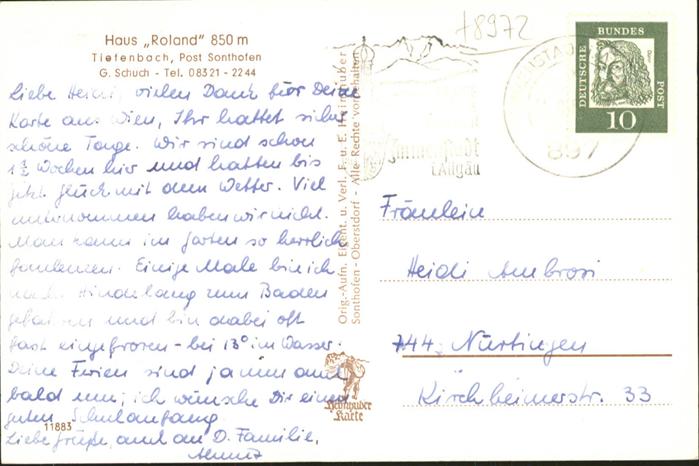 Haus „Roland" 850 m
Tiefenbach, Post Sonthofen
G. Schuch - Tel. 08321 - 2244
Liebe Heidi, vielen Dank für Deine
Karte aus Wien, Ihr hattet sicher
schöne Tage. Wir sind schon
1½ Wochen hier und hatten bis
jetzt Glück mit dem Wetter. Viel
unternommen haben wir nicht.
Man kann im Garten so herrlich
faulenzen. Einige Male bin ich
nach Hindelang zum Baden
gefahren und bin dabei oft
fast eingefroren - bei 13° im Wasser.
Deine Ferien sind ja nun auch
bald um; ich wünsche Dir einen
guten Schulanfang.
Liebe Grüße, auch an D. Familie,
11883
Orig.-Aufn. Eigent. u. Verl. F. u. E.
Sonthofen - Oberstdorf - Alle Rechte vorbehalten
Heimhuber
Karte
78972
Immenstadt
i. Allgäu
897
DEUTSCHE BUNDES POST
10
Fräulein
Heidi Ambrosi
744 Nürtingen
Kirchheimerstr. 33